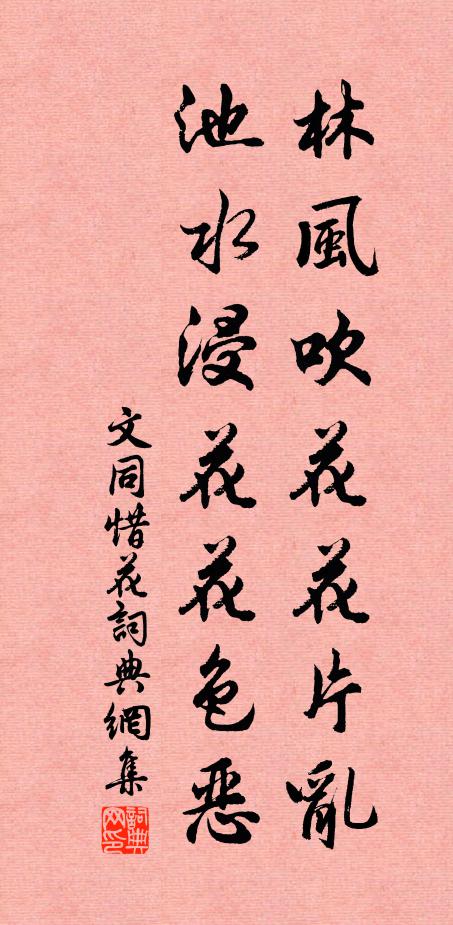 林風吹花花片亂
池水浸花花色恶
文同惜花詞典網集
詞典网印